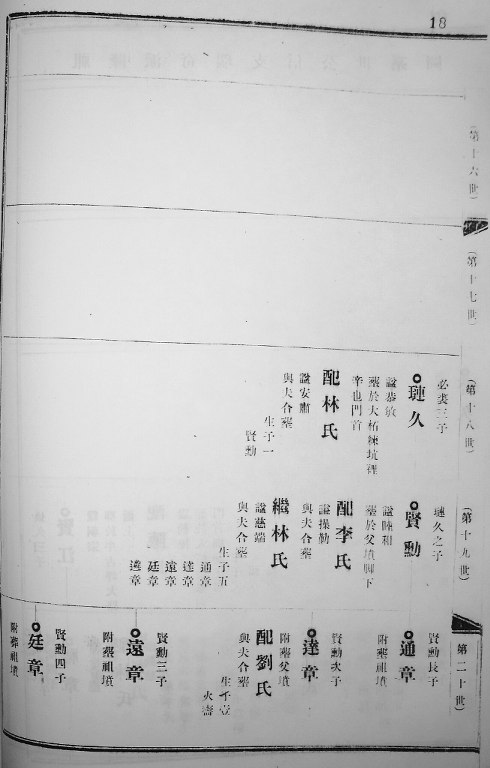 18
(第十六世)
(第十七世)
(第十八世)
必裘三子
璉久
諡恭敏
塟於大柘練坑裡
辛也門首
配林氏
諡安肅
與夫合塟
生子一
賢勳
(第十九世)
璉久之子
賢勳
諡睦和
塟於父墳脚下
配李氏
諡操勤
與夫合塟
繼林氏
諡慈端
與夫合塟
生子五
通章
達章
遠章
廷章
第二十世)
賢勳長子
通章
附塟祖墳
賢勳次子
達章
附塟父墳
配劉氏
與夫合塟
生子壹
火壽
賢勳三子
遠章
附塟祖墳
賢勳四子
廷章
附葬祖墳